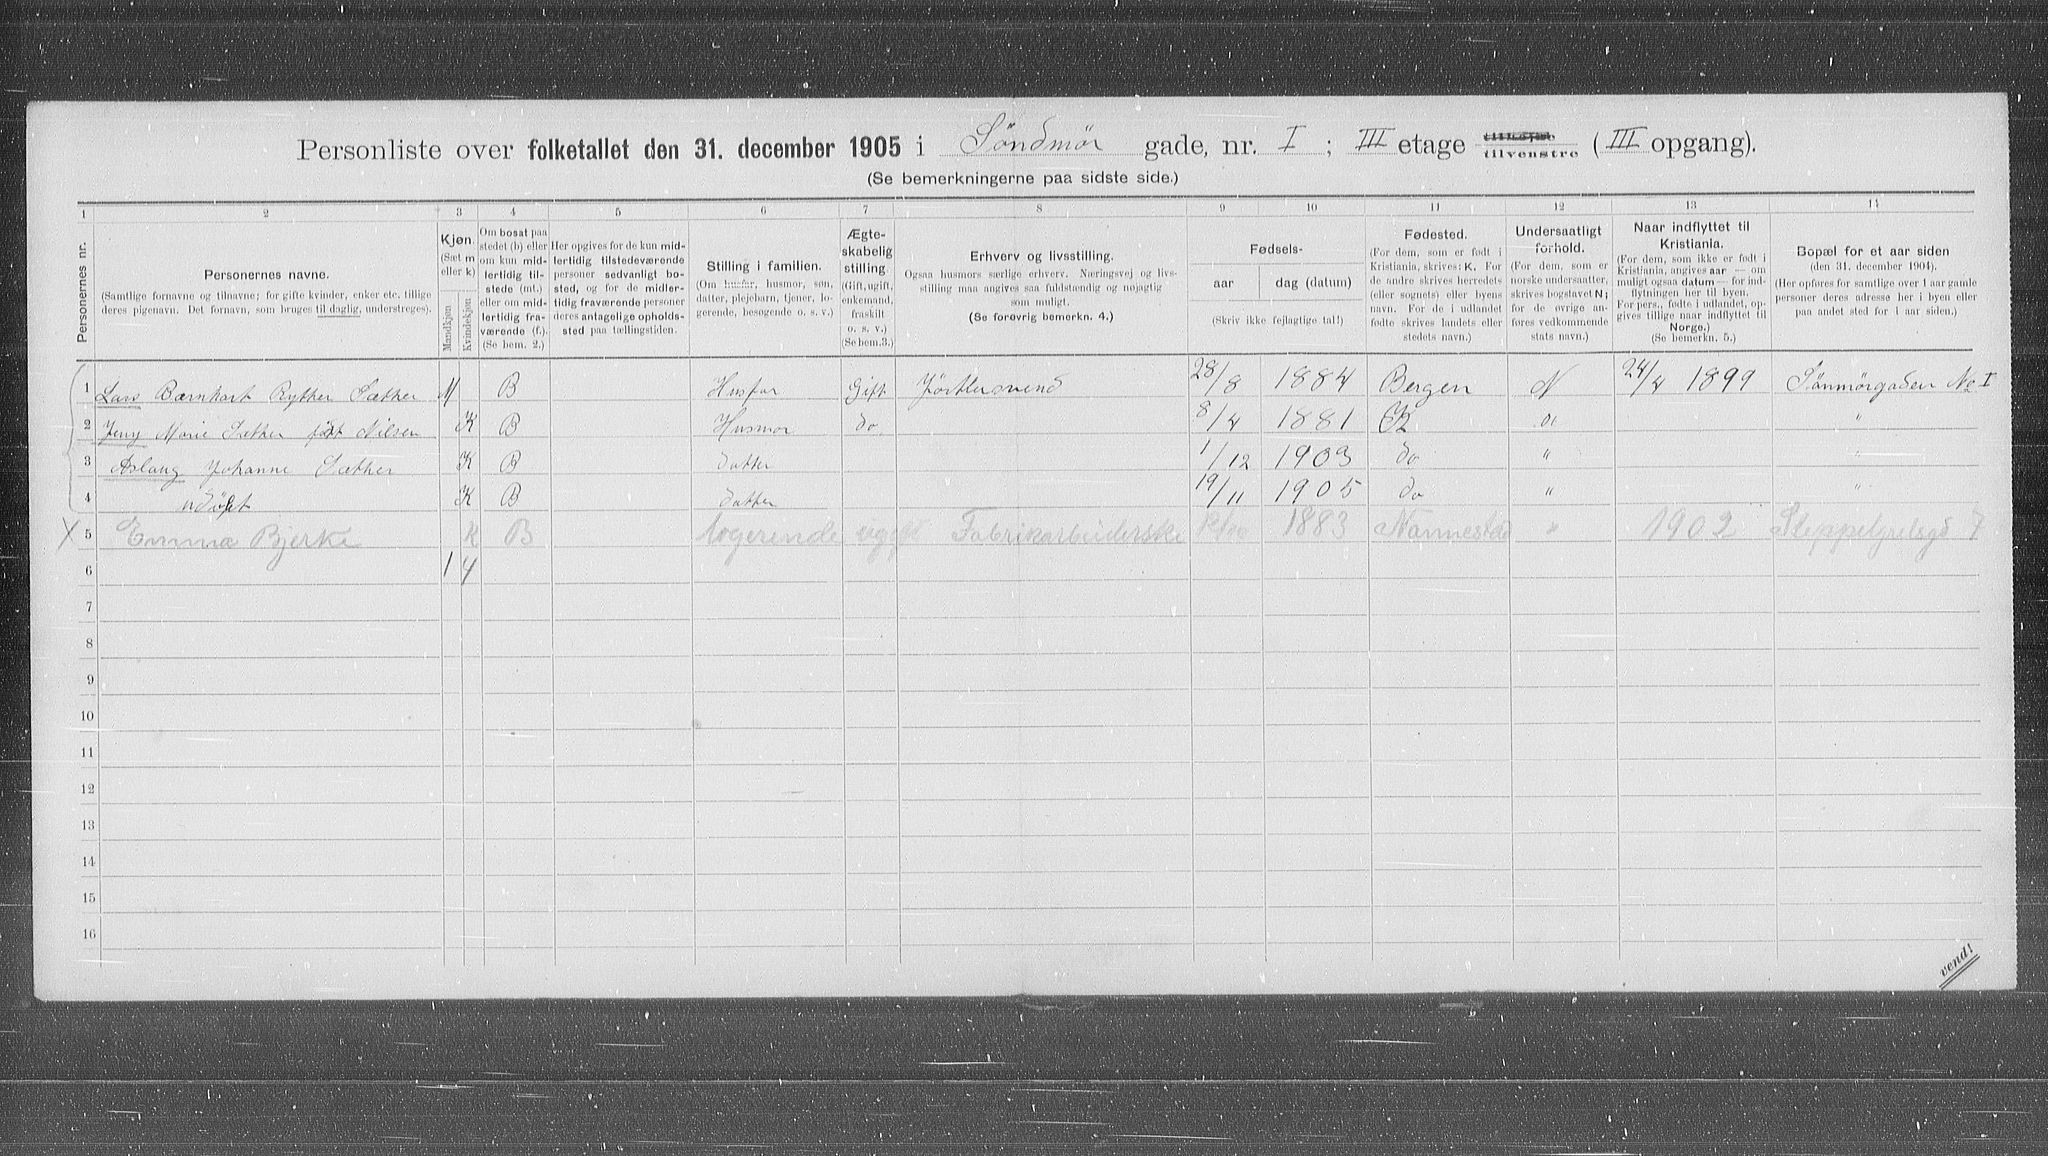 Personliste over folketallet den 31. december 1905 i Söndmör gade, nr. I ; III etage tilhøjre tilvenstre (III opgang).
(Se bemerkningerne paa sidste side.)
1 2 3 4 5 6 7 8 9 10 11 12 13 14
Personernes nr.
Personernes navne.
(Samtlige fornavne og tilnavne; for gifte kvinder, enker etc. tillige deres pigenavn. Det fornavn, som bruges til daglig, understreges).
Kjøn.
(Sæt m eller k.)
Mandkjøn
Kvindekjøn
Om bosat paa stedet (b) eller om kun midlertidig tilstede (mt.) eller om midlertidig fraværende (f.). (Se bem. 2.)
Her opgives for de kun midlertidig tilstedeværende personer sedvanlig bosted, og for de midlertidig fraværende personer deres antagelige opholdssted paa tællingstiden.
Stilling i familien.
(Om husfar, husmor, søn, datter, plejebarn, tjener, logerende, besøgende o. s. v.)
Ægteskabelig stilling
(Gift, ugift, enkemand, fraskilt o. s. v.) (Se bem. 3.)
Erhverv og livsstilling.
Ogsaa husmors særlige erhverv. Næringsvej og livsstilling maa angives saa fuldstændig og nøjagtig som muligt.
(Se forøvrig bemerkn. 4.)
Fødsels-
aar dag (datum)
(Skriv ikke fejlagtige tal!)
Fødested.
(For dem, som er født i Kristiania, skrives: K. For de andre skrives herredets (eller sognets) eller byens navn. For de i udlandet fødte skrives landets eller stedets navn.)
Undersaatligt forhold.
(For dem, som er norske undersaatter, skrives bogstavet N; for de øvrige anføres vedkommende stats navn.)
Naar indflyttet til Kristiania.
(For dem, som ikke er født i Kristiania, angives aar — om muligt ogsaa datum — for indflytningen her til byen. For pers., fødte i udlandet, opgives tillige naar indflyttet til Norge.)
(Se bemerkn. 5.)
Bopæl for et aar siden
(den 31. december 1904).
(Her opføres for samtlige over 1 aar gamle personer deres adresse her i byen eller paa andet sted for 1 aar siden.)
1 Lars Bernhart Ryther Sæther M B Husfar Gift 28/8 1884 Bergen N 24/4 1899 Sönmörgaden No I
2 Jeny Marie Sæther födt Nilsen K B Husmor do. 8/4 1881 K do "
3 Aslaug Johanne Sæther K B datter 1/12 1903 do " "
4 udöbt K B datter 19/11 1905 do " "
5 Emma Bjerke K B logerende ugift Fabrikarbeiderske 1883 Nannestad " 1902 7
6 1 4
7
8
9
10
11
12
13
14
15
16
vend!